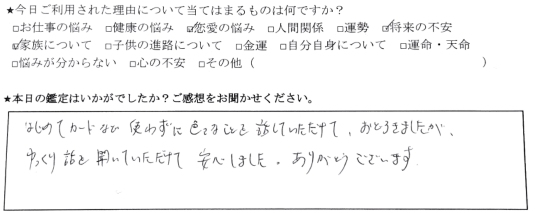 ★今日ご利用された理由について当てはまるものは何ですか？
□お仕事の悩み □健康の悩み ☑恋愛の悩み □人間関係 □運勢 ☑将来の不安
☑家族について □子供の進路について □金運 □自分自身について □運命・天命
□悩みが分からない □心の不安 □その他（　　　　）
★本日の鑑定はいかがでしたか？ご感想をお聞かせください。
はじめてカードなど使わずに色々なことを話していただけて、おどろきましたが、
ゆっくり話を聞いていただけて安心しました。ありがとうございます。